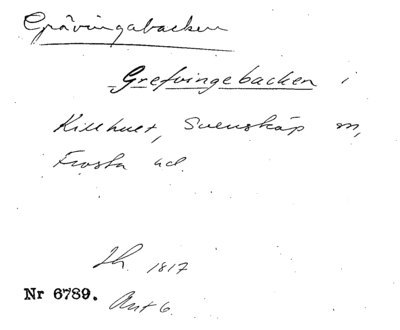 Grävingabacken
Grefvingebacken i
Killhult, Svensköp sn,
Frosta hd.
Lh. 1817
Nr 6789. Ant 6.